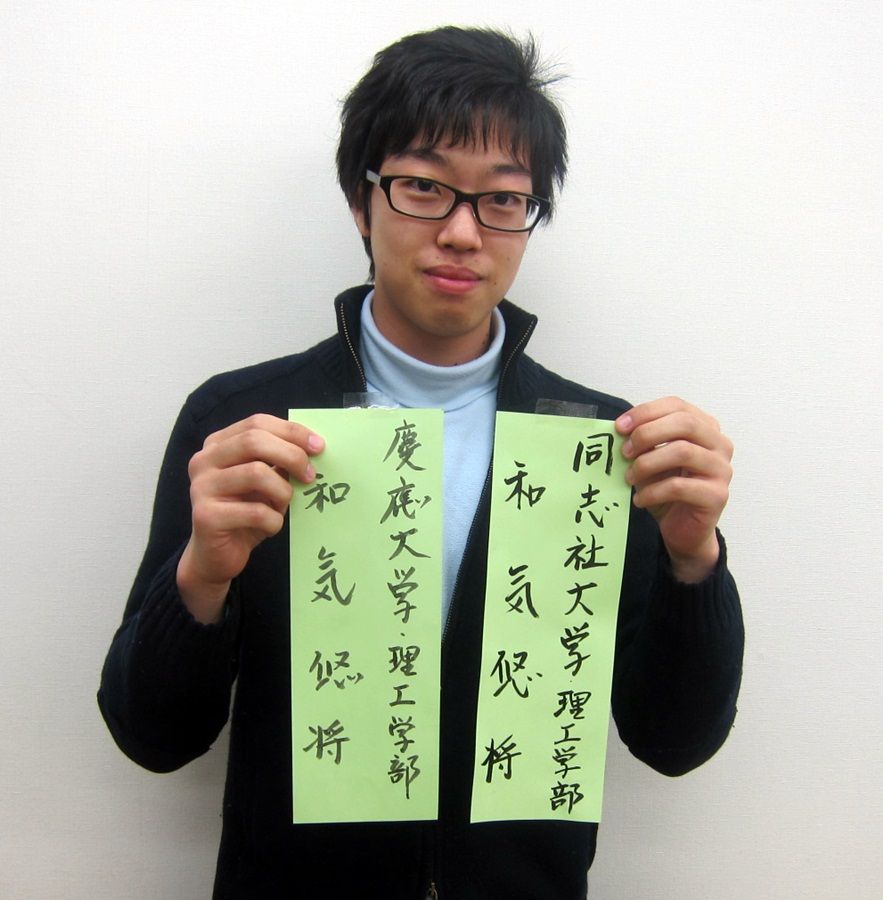 慶應大学・理工学部
和気悠将
同志社大学・理工学部
和気悠将